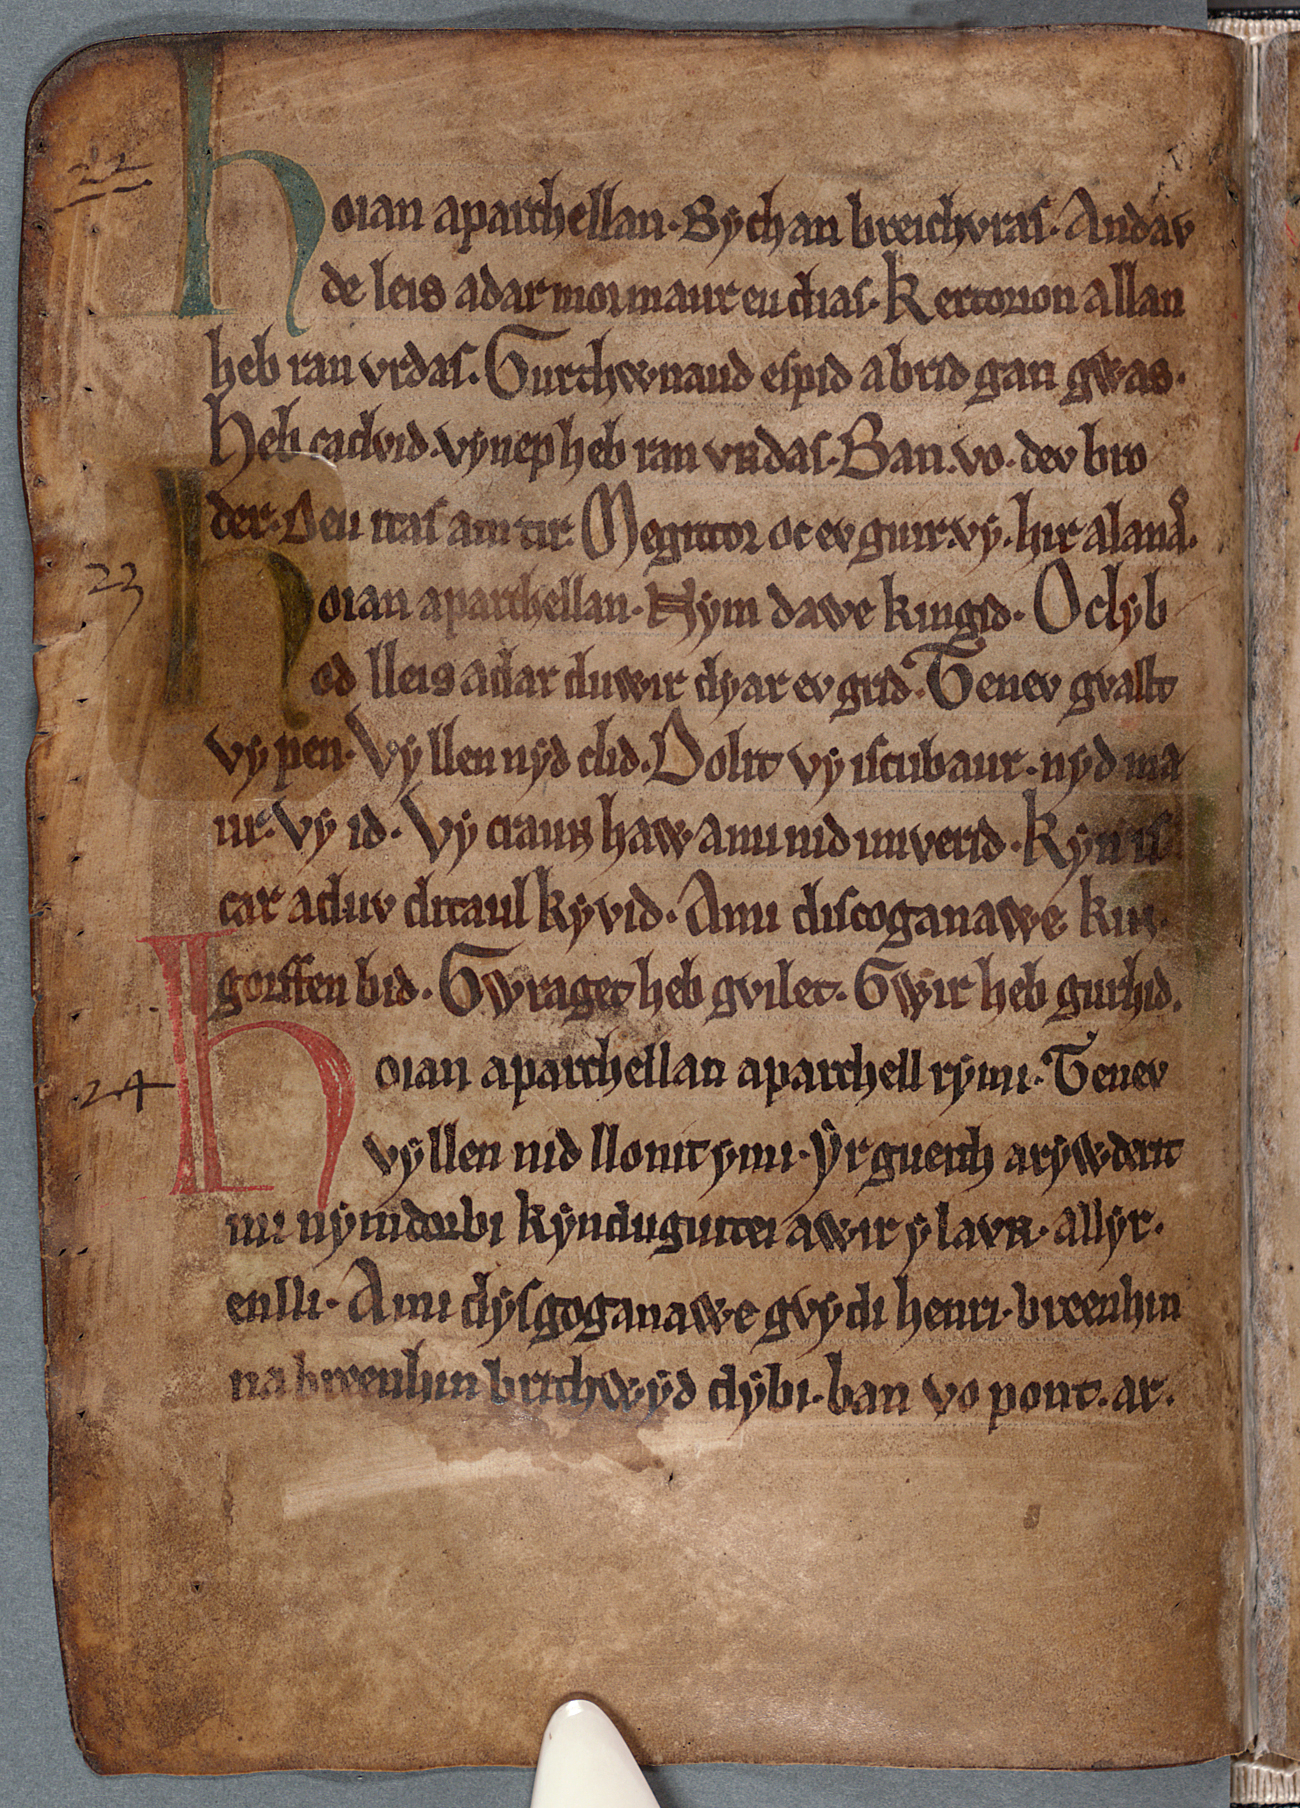 22
hoian aparchellan. Bychan breichvras. Andav
de leis adar mor maur eu dias. Kertorion allan
heb ran vrdas. Gurthwnaud espid abrid gan gwas.
Heb cadvid. vynep heb ran vrdas. Ban. vo. dev bro
der. Deu itas am tir. Megittor oc ev guir. vy. hir alanas.
23
hoian aparchellan. Nym dawe kingid. Oclyb
od lleis adar duwir dyar ev grid. Tenev gvallt
vy pen. Vy llen nyd clid. Dolit vy iscubaur. nyd ma
ur. vy id. Vy craun haw aminid imverid. Kyn is
car aduv ditaul kyvid. Ami discoganawe kin.
gorffen bid. Gwraget heb gvilet. Gwir heb gurhid.
24
hoian aparchellan aparchell rymi. Tenev
vy llen nid llonit ymi. Yr gueith arywderit
mi nymdorbi kyndugutei awir y lavr. allyr.
enlli. Ami dysgoganawe gvydi henri. breenhin
na breenhin brithwyd dybi. ban vo pont. ar.